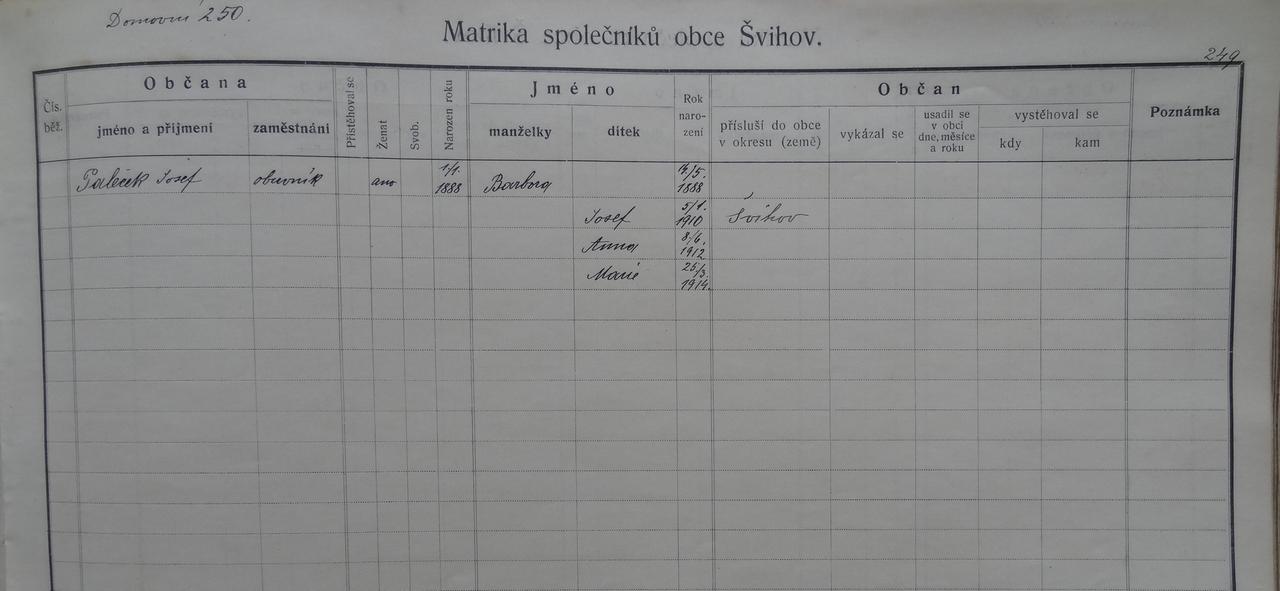 Domovní 250.
Matrika společníků obce Švihov.
249
Čís. běž.
Občana
jméno a příjmení
zaměstnání
Přistěhoval se
Ženat
Svob.
Narozen roku
Jméno
manželky
dítek
Rok naro- zení
Občan
přísluší do obce v okresu (země)
vykázal se
usadil se v obci dne, měsíce a roku
vystěhoval se
kdy
kam
Poznámka
Paleček Josef obuvník ano 1/1. 1888 Barbora 14/5. 1888
Josef 5/1. 1910 Švihov
Anna 8/6. 1912
Marie 25/3. 1914.